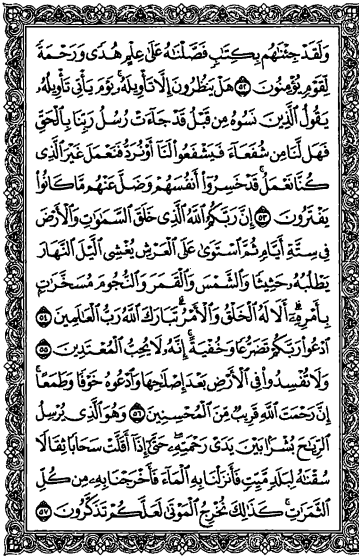 وَلَقَدْ جِئْنَٰهُم بِكِتَٰبٍ فَصَّلْنَٰهُ عَلَىٰ عِلْمٍ هُدًى وَرَحْمَةً
لِّقَوْمٍ يُؤْمِنُونَ ۝٥٢ هَلْ يَنظُرُونَ إِلَّا تَأْوِيلَهُۥ ۚ يَوْمَ يَأْتِى تَأْوِيلُهُۥ
يَقُولُ الَّذِينَ نَسُوهُ مِن قَبْلُ قَدْ جَآءَتْ رُسُلُ رَبِّنَا بِالْحَقِّ
فَهَل لَّنَا مِن شُفَعَآءَ فَيَشْفَعُوا۟ لَنَآ أَوْ نُرَدُّ فَنَعْمَلَ غَيْرَ الَّذِى
كُنَّا نَعْمَلُ ۚ قَدْ خَسِرُوٓا۟ أَنفُسَهُمْ وَضَلَّ عَنْهُم مَّا كَانُوا۟
يَفْتَرُونَ ۝٥٣ إِنَّ رَبَّكُمُ اللَّهُ الَّذِى خَلَقَ السَّمَٰوَٰتِ وَالْأَرْضَ
فِى سِتَّةِ أَيَّامٍ ثُمَّ اسْتَوَىٰ عَلَى الْعَرْشِ يُغْشِى الَّيْلَ النَّهَارَ
يَطْلُبُهُۥ حَثِيثًا وَالشَّمْسَ وَالْقَمَرَ وَالنُّجُومَ مُسَخَّرَٰتٍۭ
بِأَمْرِهِۦٓ ۗ أَلَا لَهُ الْخَلْقُ وَالْأَمْرُ ۗ تَبَارَكَ اللَّهُ رَبُّ الْعَٰلَمِينَ ۝٥٤
ادْعُوا۟ رَبَّكُمْ تَضَرُّعًا وَخُفْيَةً ۚ إِنَّهُۥ لَا يُحِبُّ الْمُعْتَدِينَ ۝٥٥
وَلَا تُفْسِدُوا۟ فِى الْأَرْضِ بَعْدَ إِصْلَٰحِهَا وَادْعُوهُ خَوْفًا وَطَمَعًا ۚ
إِنَّ رَحْمَتَ اللَّهِ قَرِيبٌ مِّنَ الْمُحْسِنِينَ ۝٥٦ وَهُوَ الَّذِى يُرْسِلُ
الرِّيَٰحَ بُشْرًۢا بَيْنَ يَدَىْ رَحْمَتِهِۦ ۖ حَتَّىٰٓ إِذَآ أَقَلَّتْ سَحَابًا ثِقَالًا
سُقْنَٰهُ لِبَلَدٍ مَّيِّتٍ فَأَنزَلْنَا بِهِ الْمَآءَ فَأَخْرَجْنَا بِهِۦ مِن كُلِّ
الثَّمَرَٰتِ ۚ كَذَٰلِكَ نُخْرِجُ الْمَوْتَىٰ لَعَلَّكُمْ تَذَكَّرُونَ ۝٥٧